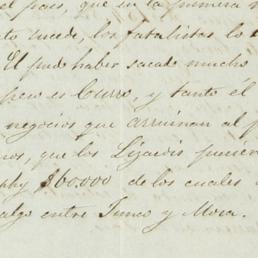 el pais, que en la primera
to sucede, los fatalistas lo
El pudo haber sacado mucho
pero es burro, y tanto él
negocios que arruinan al p
nos, que los Lizardis
phy $60.000 de los cuales
algo entre Junco y Mora.